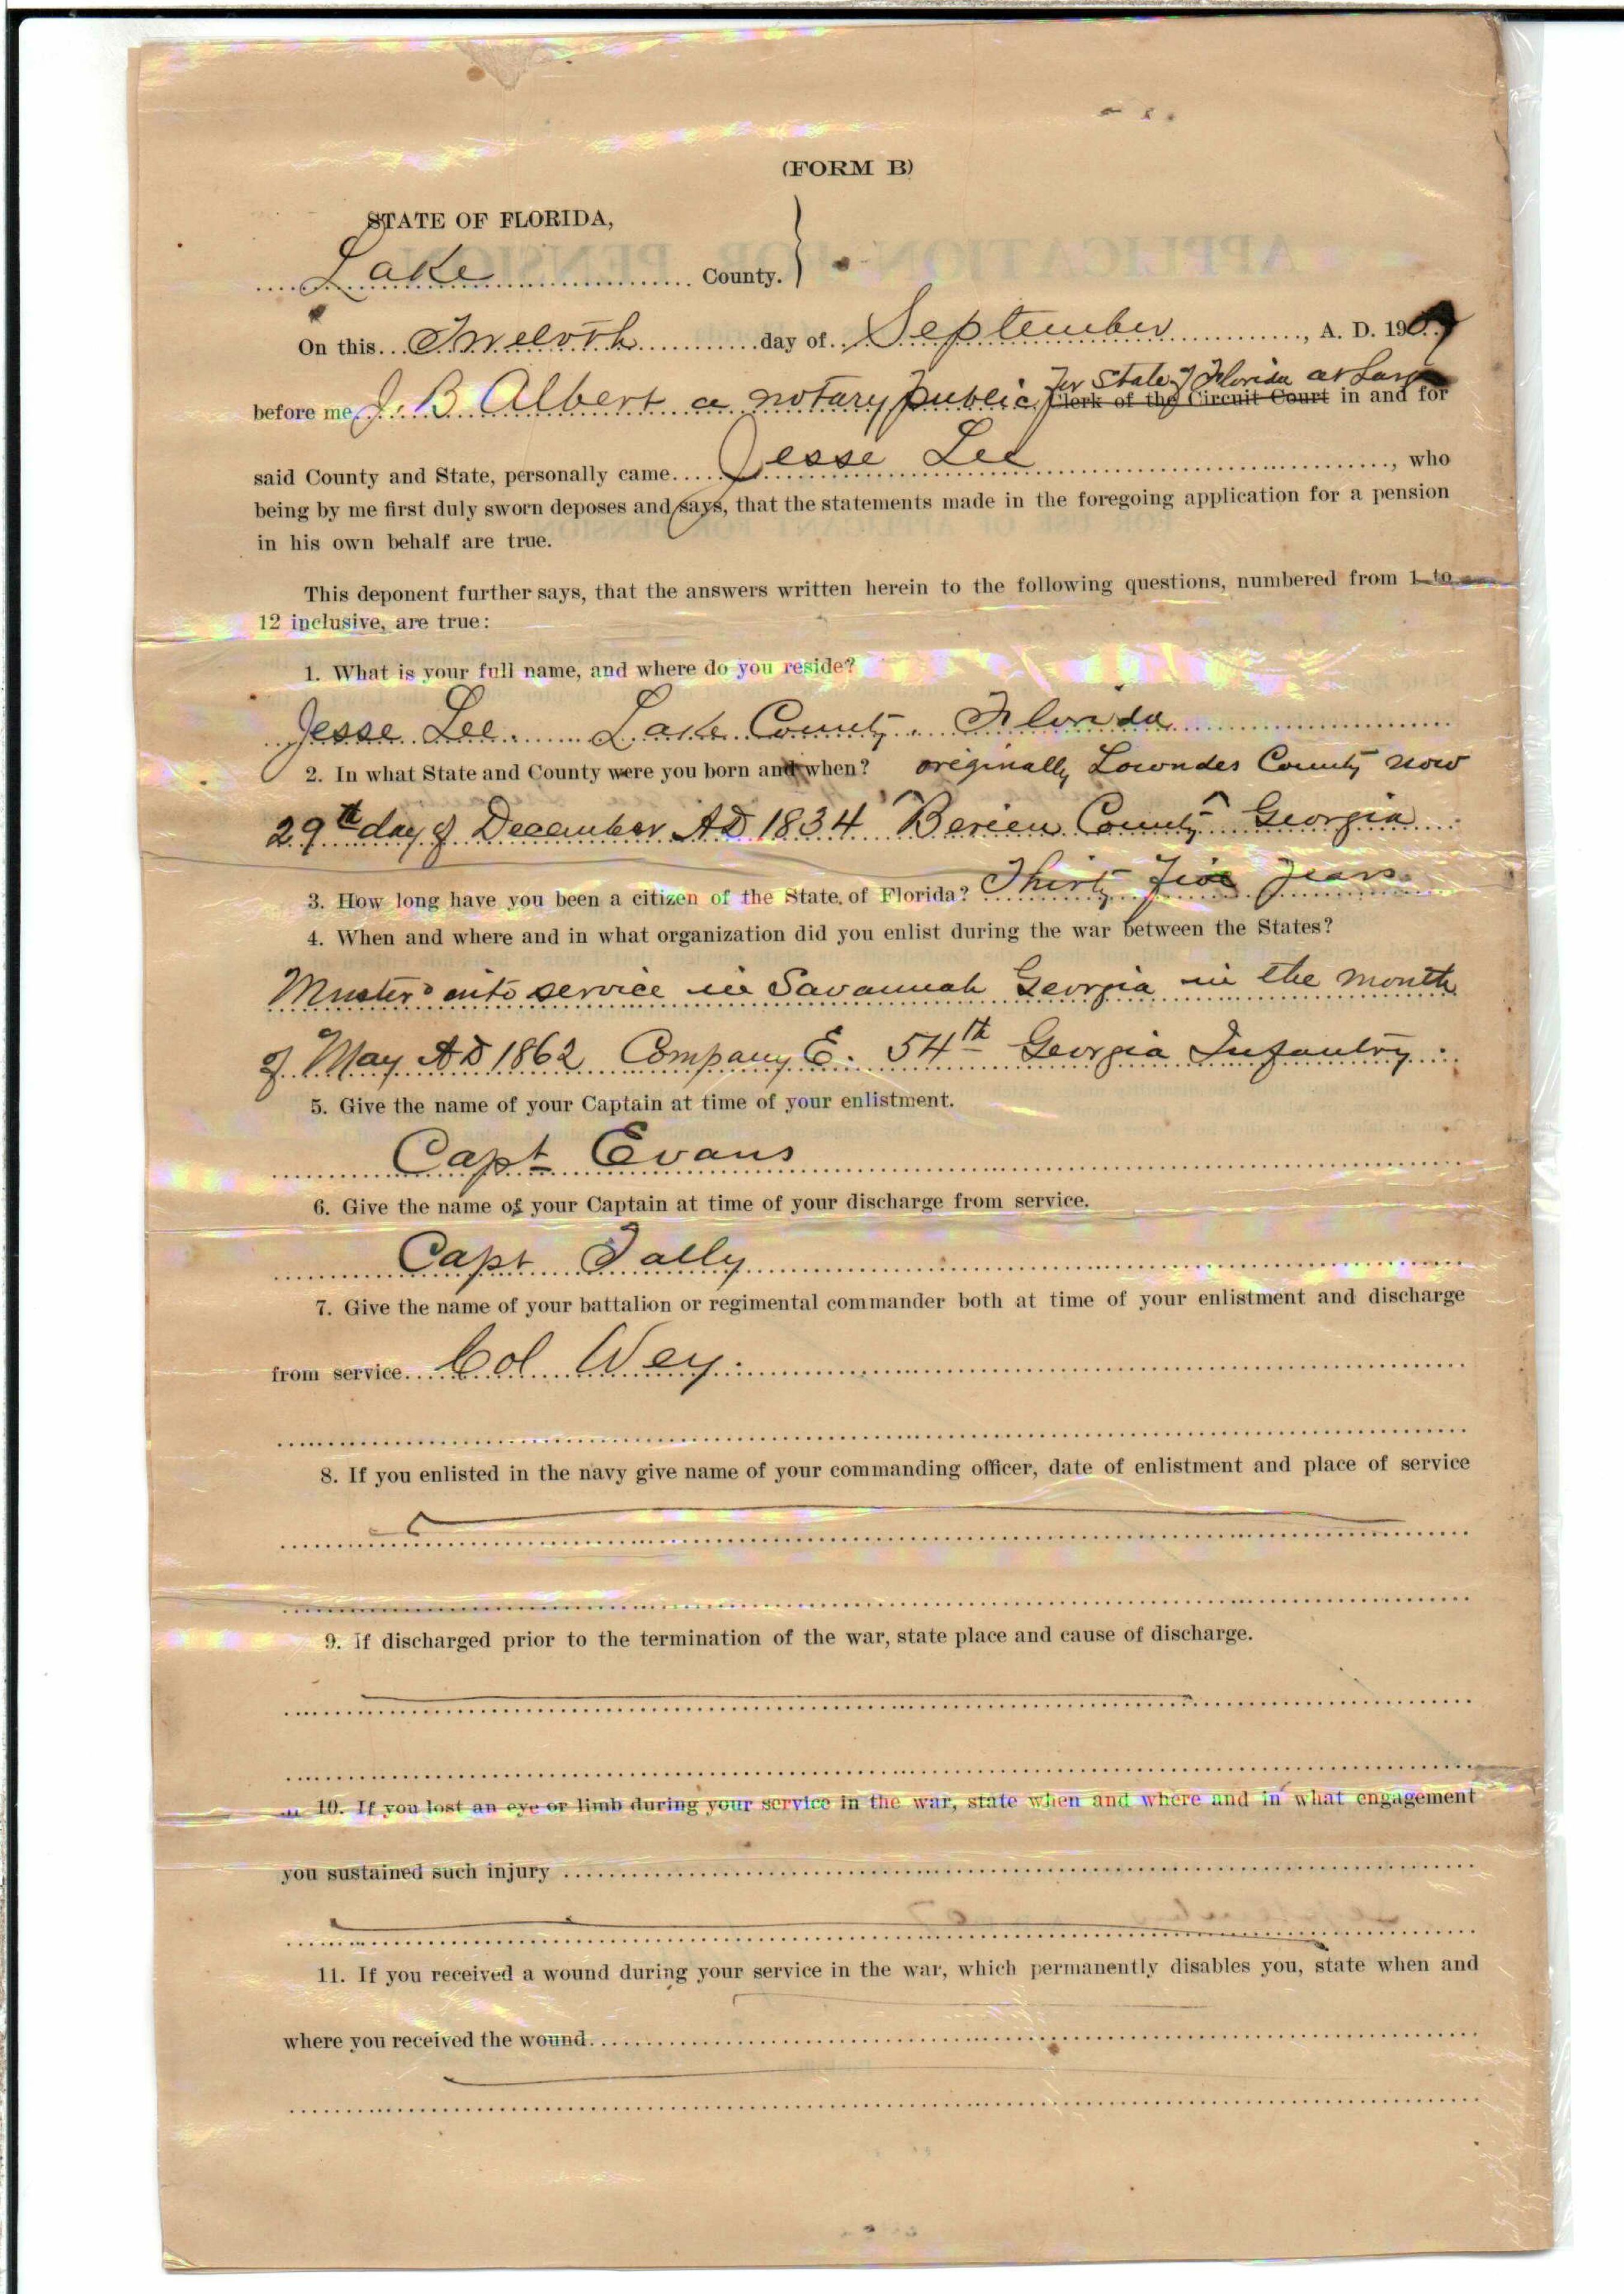 (FORM B)
STATE OF FLORIDA,
Lake County.
On this Twelvth day of September, A. D. 190
before me J. B Albert a notary public for State of Florida at Large Clerk of the Circuit Court in and for
said County and State, personally came Jesse Lee, who
being by me first duly sworn deposes and says, that the statements made in the foregoing application for a pension
in his own behalf are true.
This deponent further says, that the answers written herein to the following questions, numbered from 1 to
12 inclusive, are true:
1. What is your full name, and where do you reside?
Jesse Lee. Lake County. Florida
2. In what State and County were you born and when? originally Lowndes County now
29th day of December AD 1834 Berien County Georgia
3. How long have you been a citizen of the State of Florida? Thirty five years
4. When and where and in what organization did you enlist during the war between the States?
Muster into service in Savannah Georgia in the month
of May AD 1862 Company E. 54th Georgia Infantry
5. Give the name of your Captain at time of your enlistment.
Capt Evans
6. Give the name of your Captain at time of your discharge from service.
Capt Tally
7. Give the name of your battalion or regimental commander both at time of your enlistment and discharge
from service Col Wey
8. If you enlisted in the navy give name of your commanding officer, date of enlistment and place of service
9. If discharged prior to the termination of the war, state place and cause of discharge.
10. If you lost an eye or limb during your service in the war, state when and where and in what engagement
you sustained such injury
11. If you received a wound during your service in the war, which permanently disables you, state when and
where you received the wound